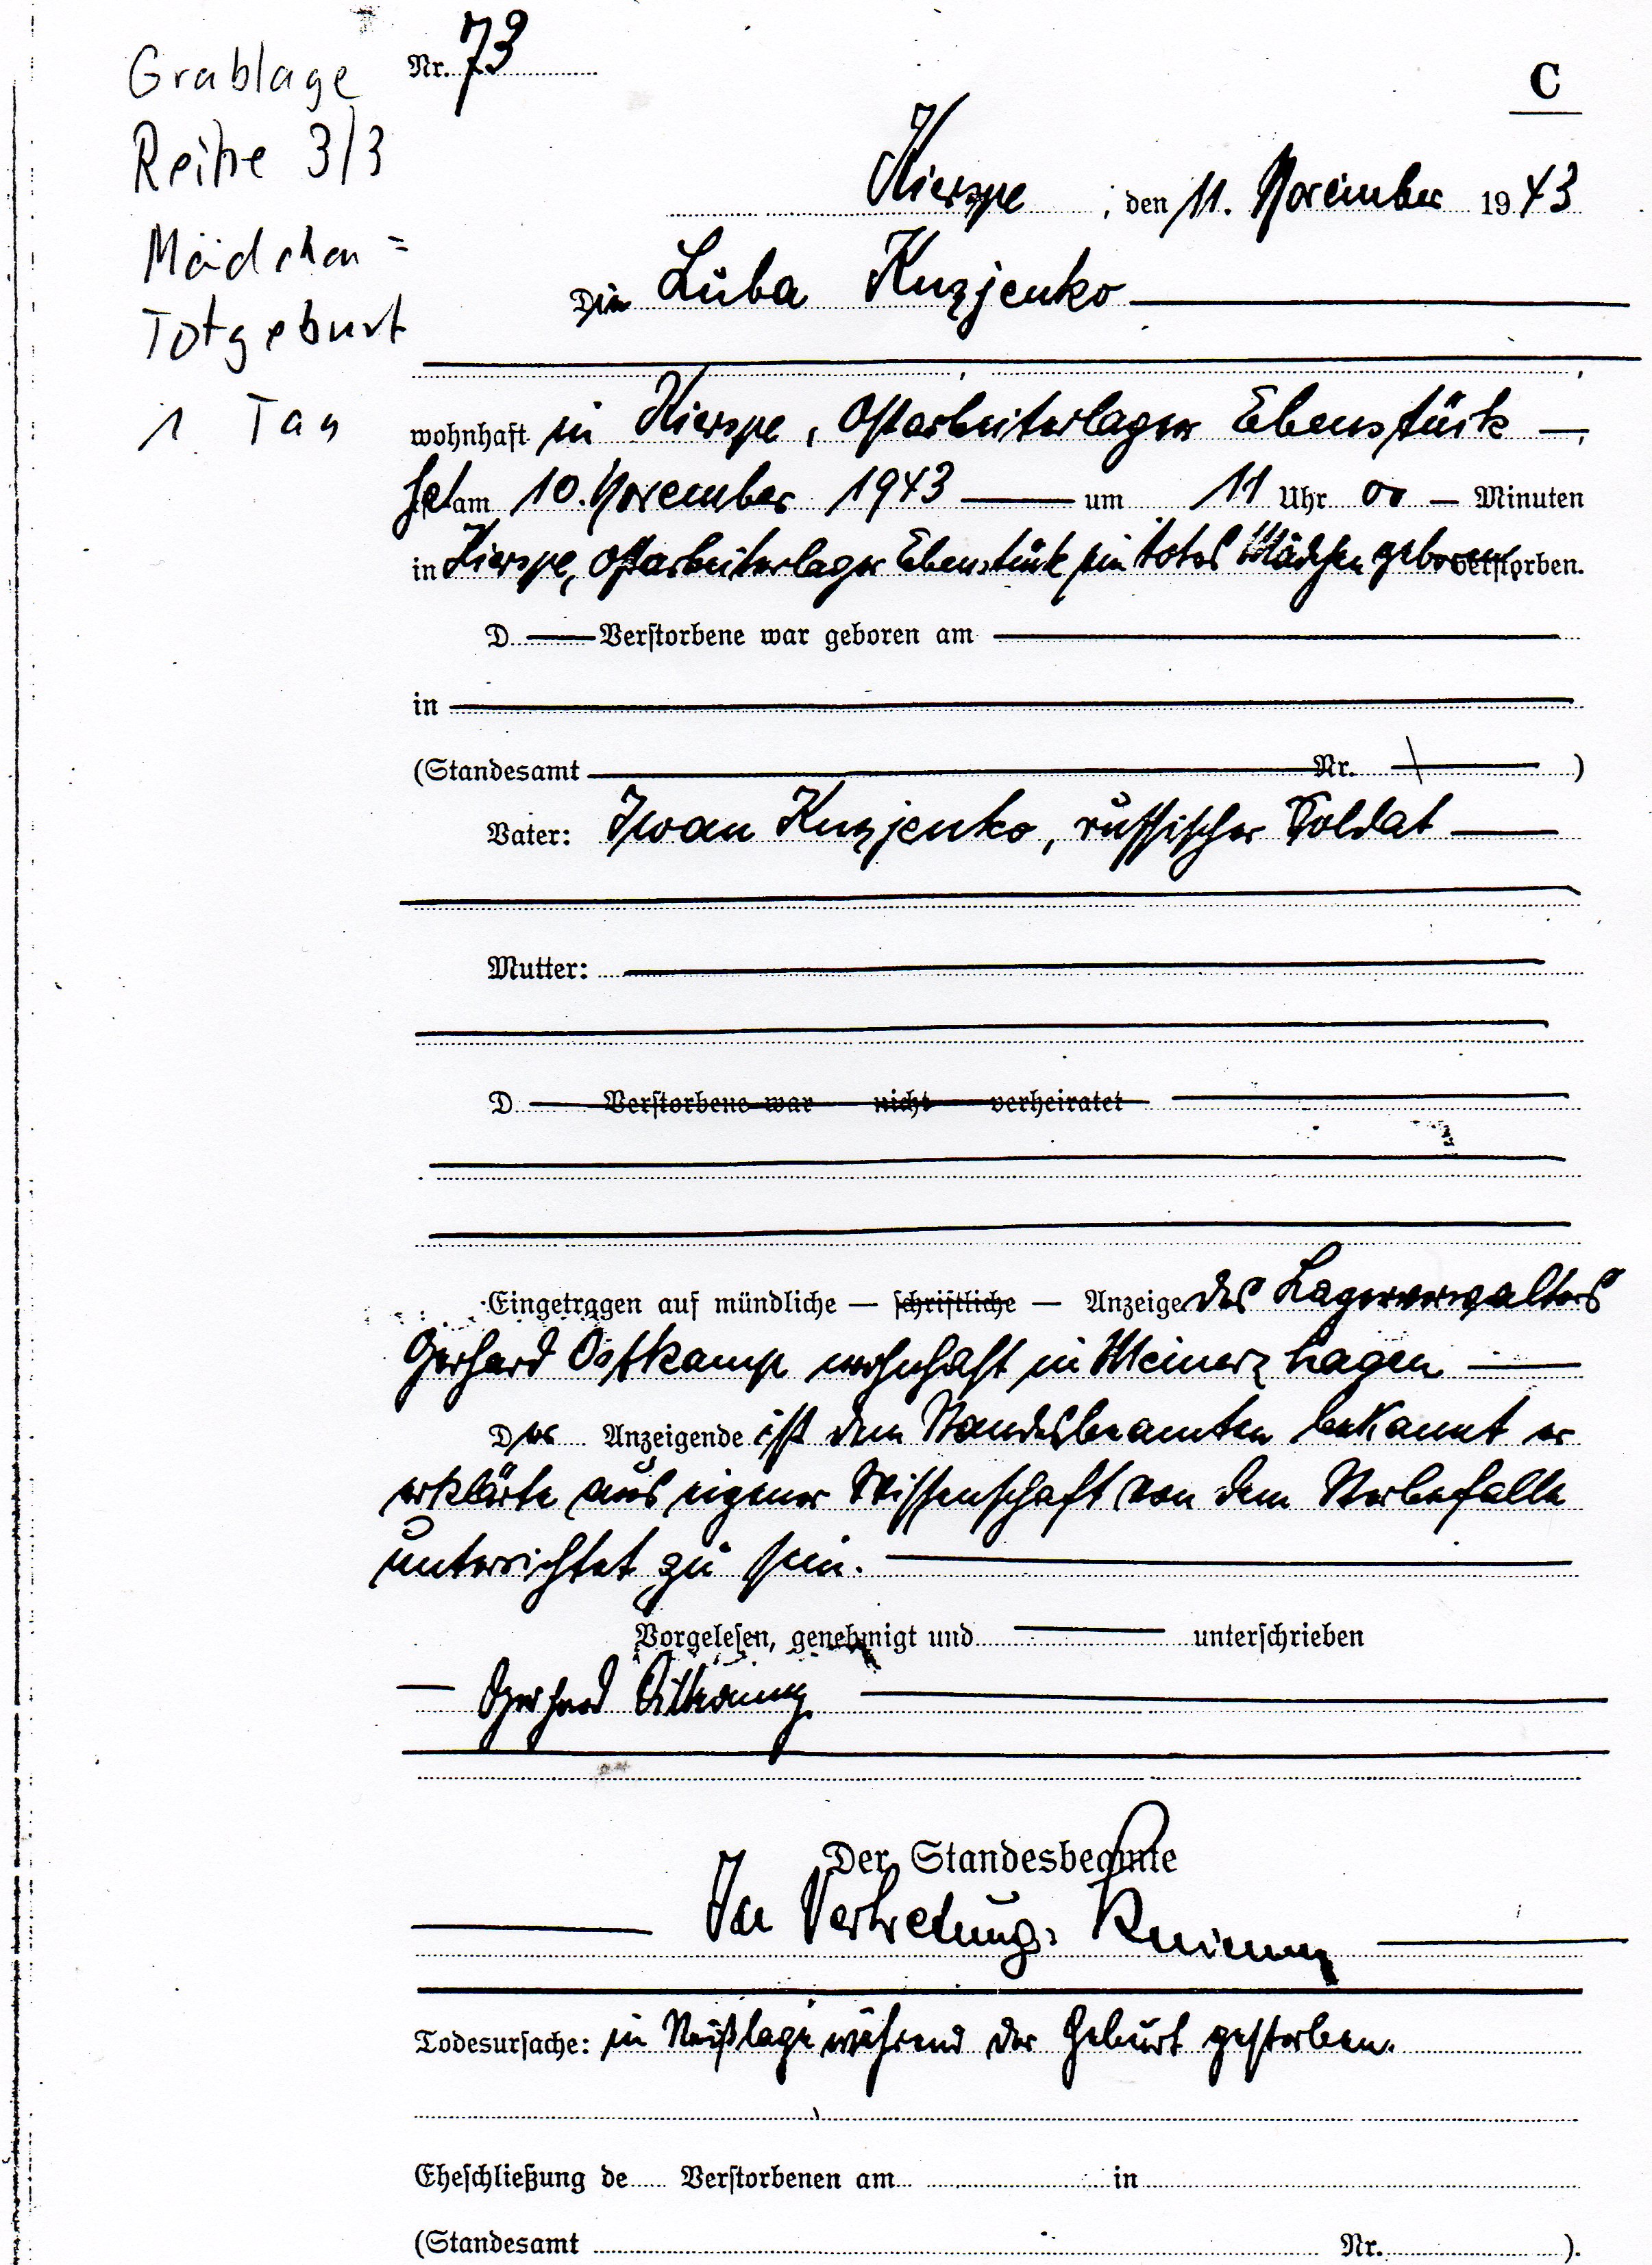 Grablage
Reihe 3/3
Mädchen =
Totgeburt
1 Tag
Nr. 73
C
Kierspe, den 11. November 1943
Die Luba Kuzjenko
wohnhaft in Kierspe, Ostarbeiterlager Ebenstück
hat am 10. November 1943 um 11 Uhr 00 Minuten
in Kierspe, Ostarbeiterlager Ebenstück ein totes Mädchen geboren verstorben.
D Verstorbene war geboren am
in
(Standesamt Nr. )
Vater: Iwan Kuzjenko, russischer Soldat
Mutter:
D Verstorbene war nicht verheiratet
Eingetragen auf mündliche — schriftliche — Anzeige des Lagerverwalters
Gerhard Ostkamp wohnhaft in Meinerzhagen
Der Anzeigende ist dem Standesbeamten bekannt er
erklärte aus eigener Wissenschaft von dem Sterbefalle
unterrichtet zu sein.
Vorgelesen, genehmigt und unterschrieben
Gerhard
Der Standesbeamte
In Vertretung:
Todesursache: in während der Geburt gestorben.
Eheschließung de Verstorbenen am in
(Standesamt Nr. ).